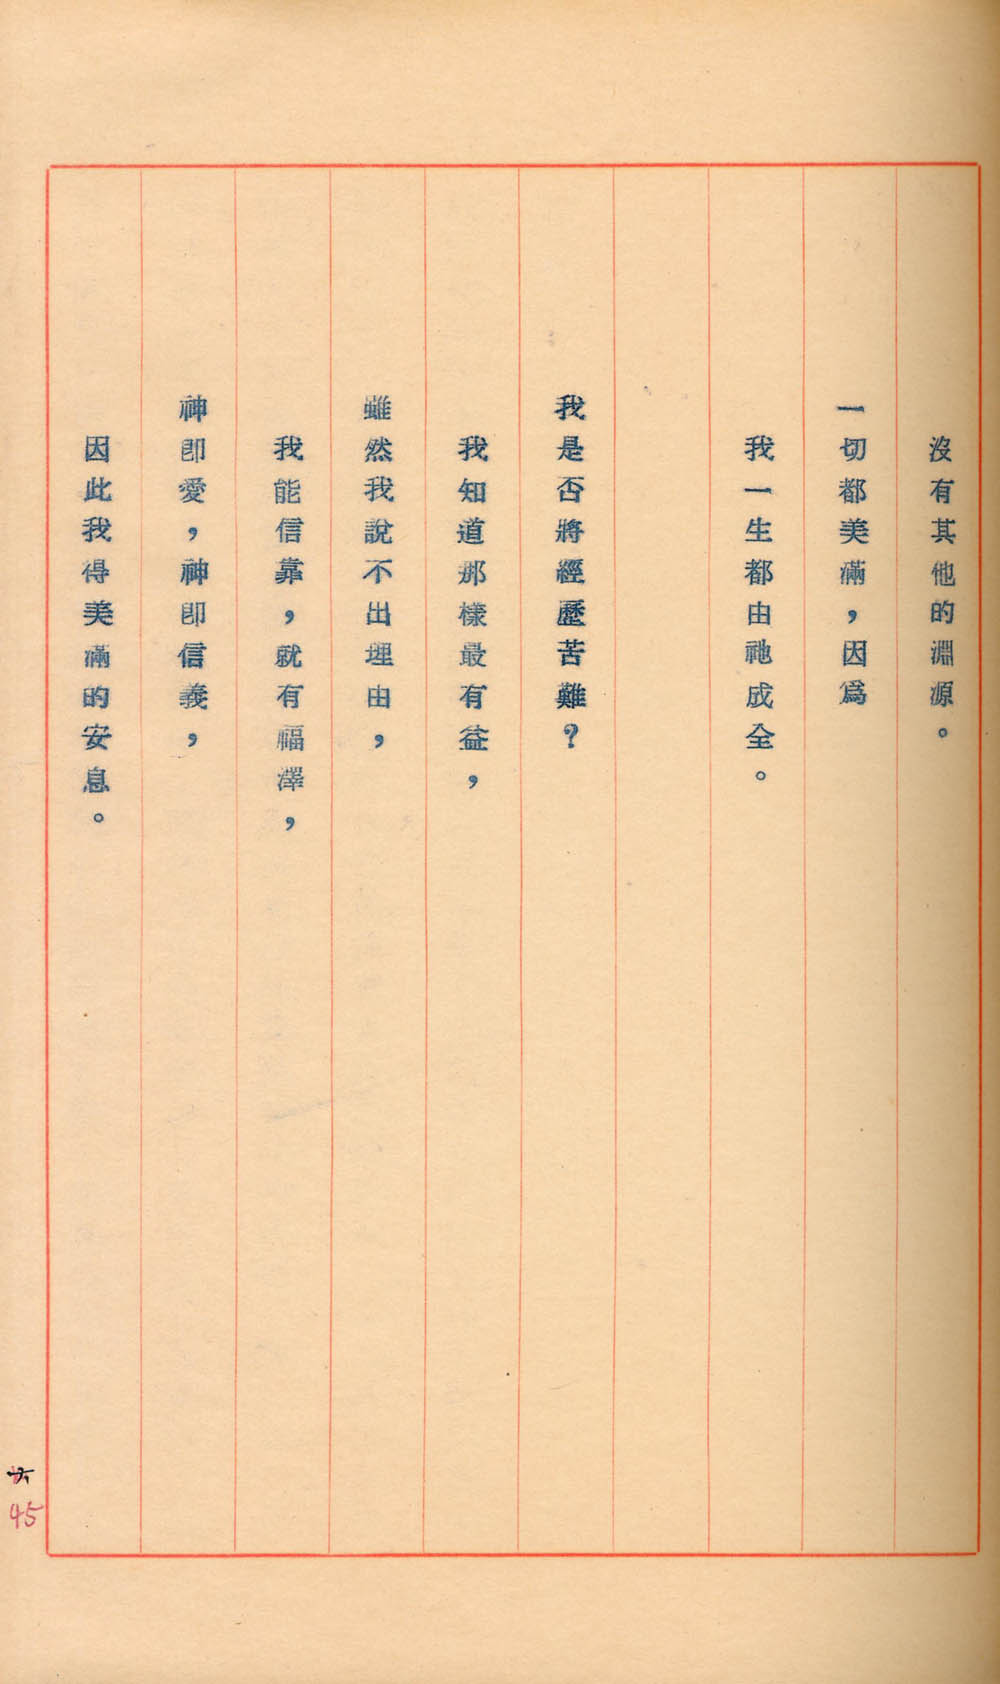 沒有其他的淵源。
一切都美滿，因爲
我一生都由祂成全。
我是否將經歷苦難？
我知道那樣最有益，
雖然我說不出理由，
我能信靠，就有福澤，
神卽愛，神卽信義，
因此我得美滿的安息。
六
45